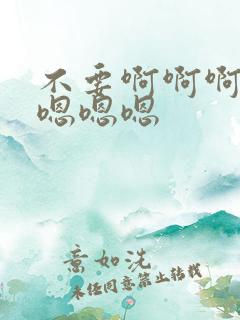 不要啊啊啊
嗯嗯嗯
意如洗
未经同意禁止转载